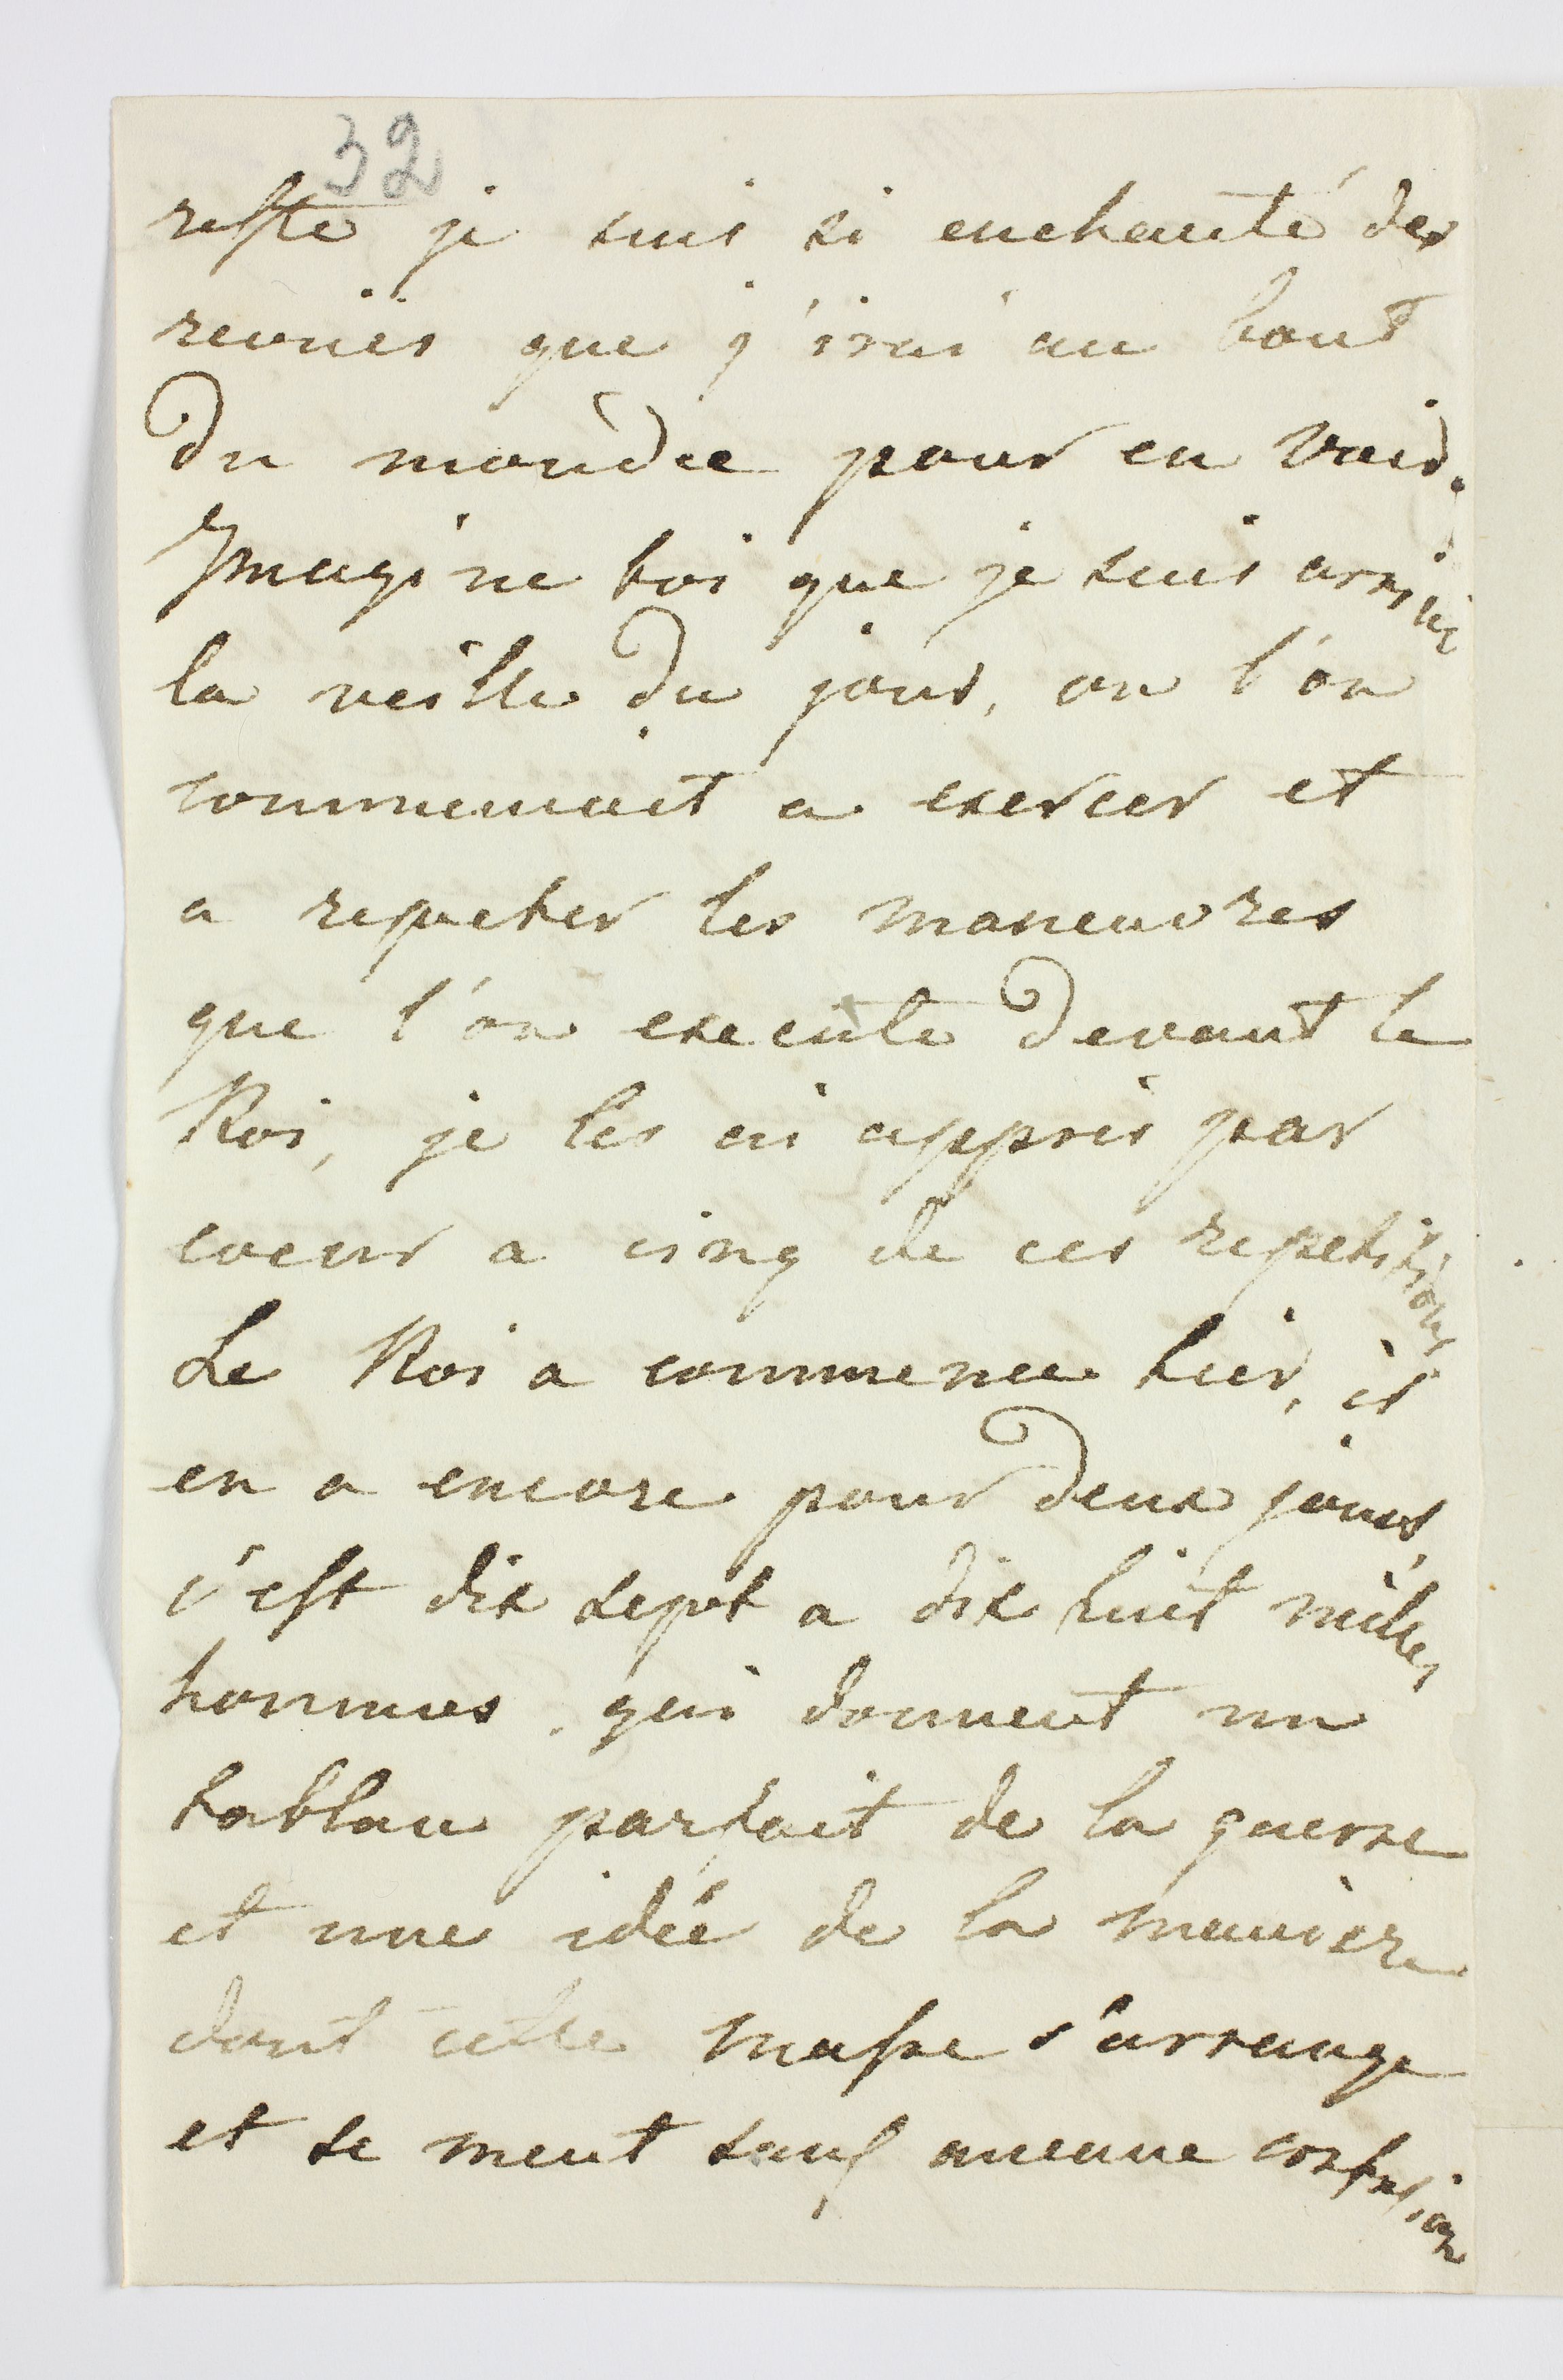 32
reste je suis si enchanté des
revües que j'irai au bout
du mondee pour en voir.
Imagine toi que je suis arrivé
la veille du jour, ou l'on
commencait a exercer et
a repeter les maneuvres
que l'on execute devant le
Roi, je les ai appris par
coeur a cinq de ces repetitions
Le Roi a commence hier, il
en a encore pour deux jours,
c'est dix sept a dix huit milles
hommes, qui donnent un
tablau parfait de la guerre
et une idée de la maniere
dont cette masse s'arrange
et se meut sans aucune confusion